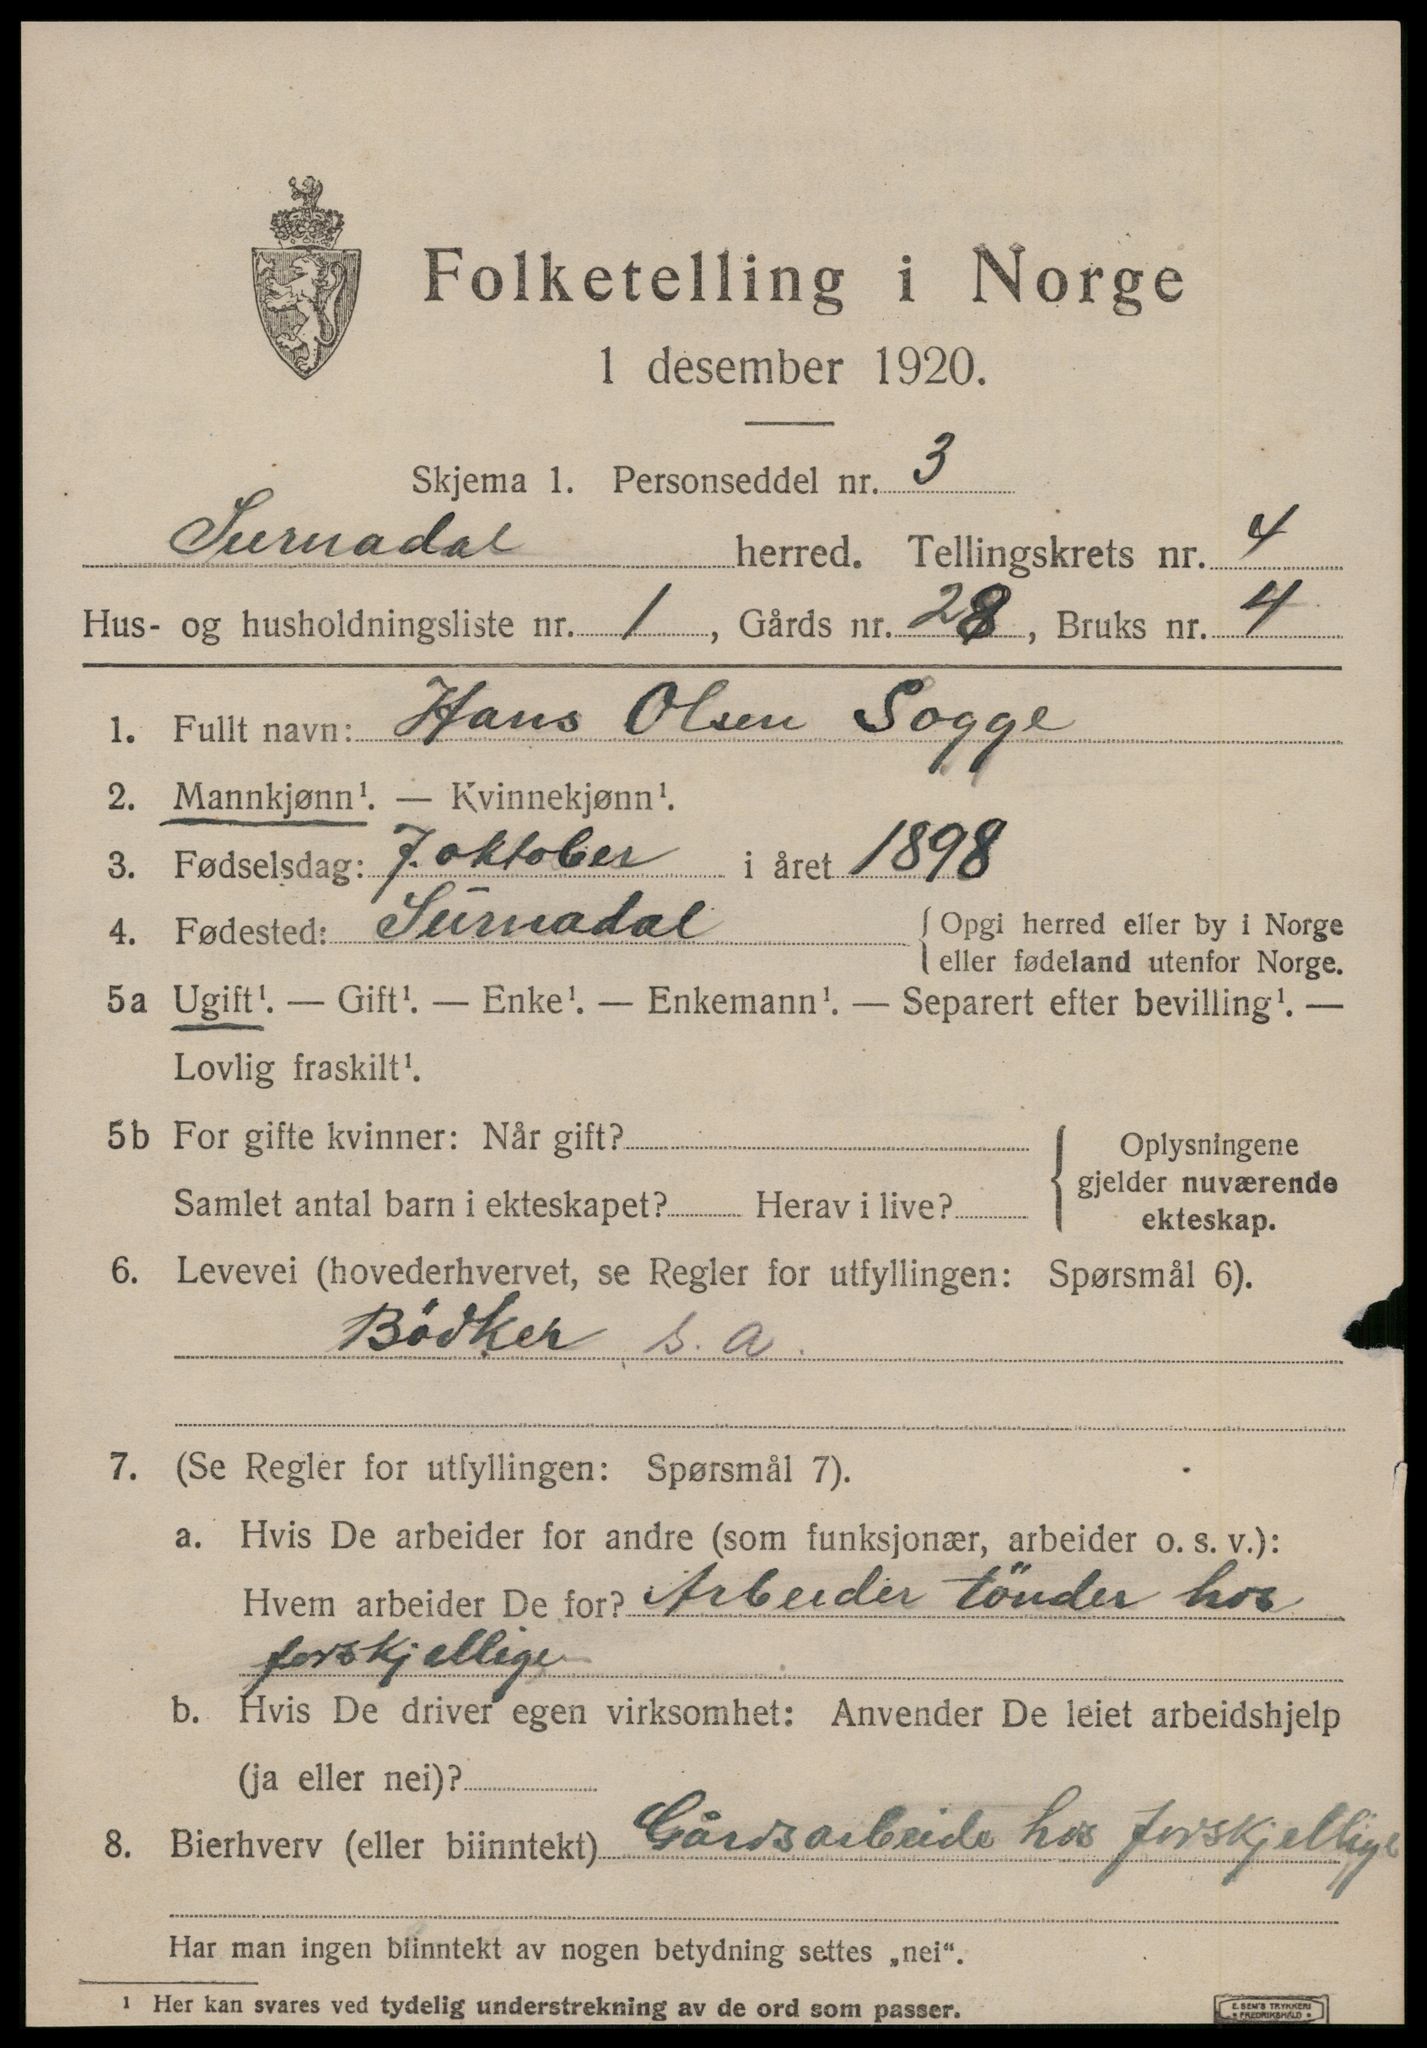 Folketelling i Norge
1 desember 1920.
Skjema 1. Personseddel nr. 3
Surnadal herred. Tellingskrets nr. 4
Hus- og husholdningsliste nr. 1, Gårds nr. 28, Bruks nr. 4
1. Fullt navn: Hans Olsen Sogge
2. Mannkjønn¹. — Kvinnekjønn¹.
3. Fødselsdag: 7. oktober i året 1898
4. Fødested: Surnadal { Opgi herred eller by i Norge
eller fødeland utenfor Norge.
5a Ugift¹. — Gift¹. — Enke¹. — Enkemann¹. — Separert efter bevilling¹. —
Lovlig fraskilt¹.
5b For gifte kvinner: Når gift? { Oplysningene
gjelder nuværende
ekteskap.
Samlet antal barn i ekteskapet? Herav i live?
6. Levevei (hovederhvervet, se Regler for utfyllingen: Spørsmål 6).
Bödker s. a.
7. (Se Regler for utfyllingen: Spørsmål 7).
a. Hvis De arbeider for andre (som funksjonær, arbeider o. s. v.):
Hvem arbeider De for? Arbeider tönder hos
forskjellige
b. Hvis De driver egen virksomhet: Anvender De leiet arbeidshjelp
(ja eller nei)?
8. Bierhverv (eller biinntekt) Gårdsarbeide hos forskjellige
Har man ingen biinntekt av nogen betydning settes „nei“.
¹ Her kan svares ved tydelig understrekning av de ord som passer.
E. SEM'S TRYKKERI
* FREDRIKSHALD *